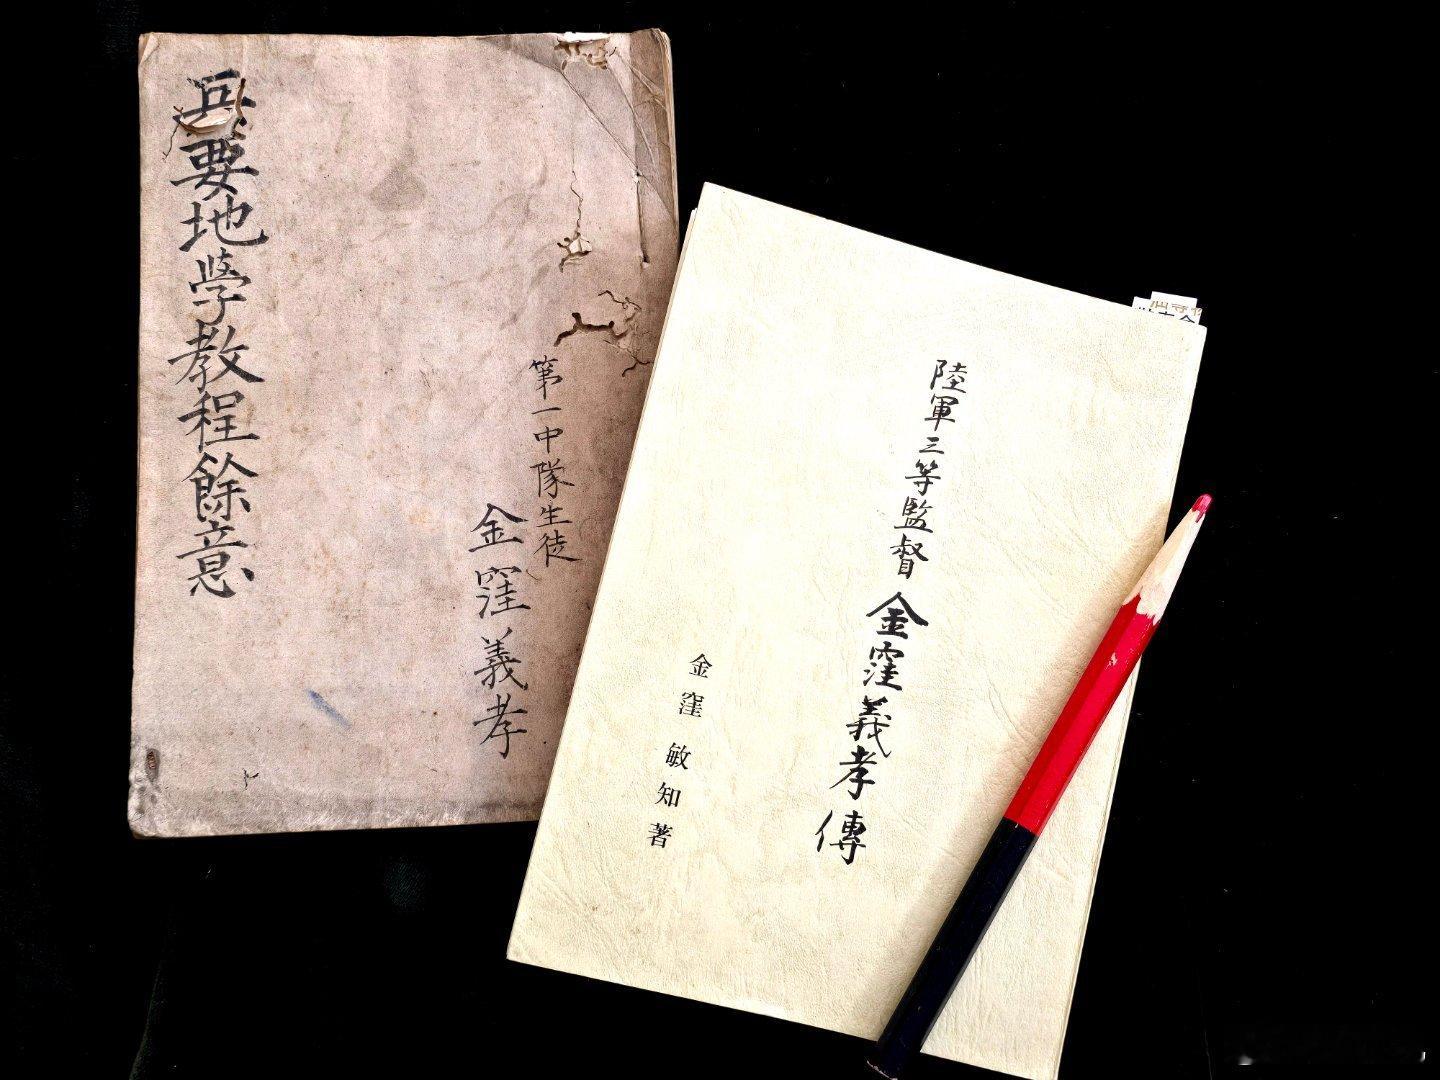 兵要地学教程餘意
第一中隊生徒
金窪義孝
陸軍三等監督
金窪義孝傳
金窪敏知著